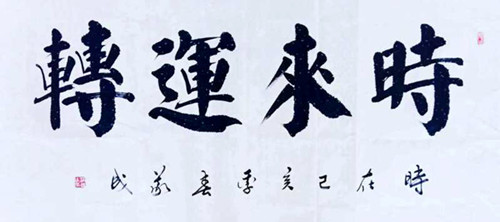 時來運轉
時在己亥季春